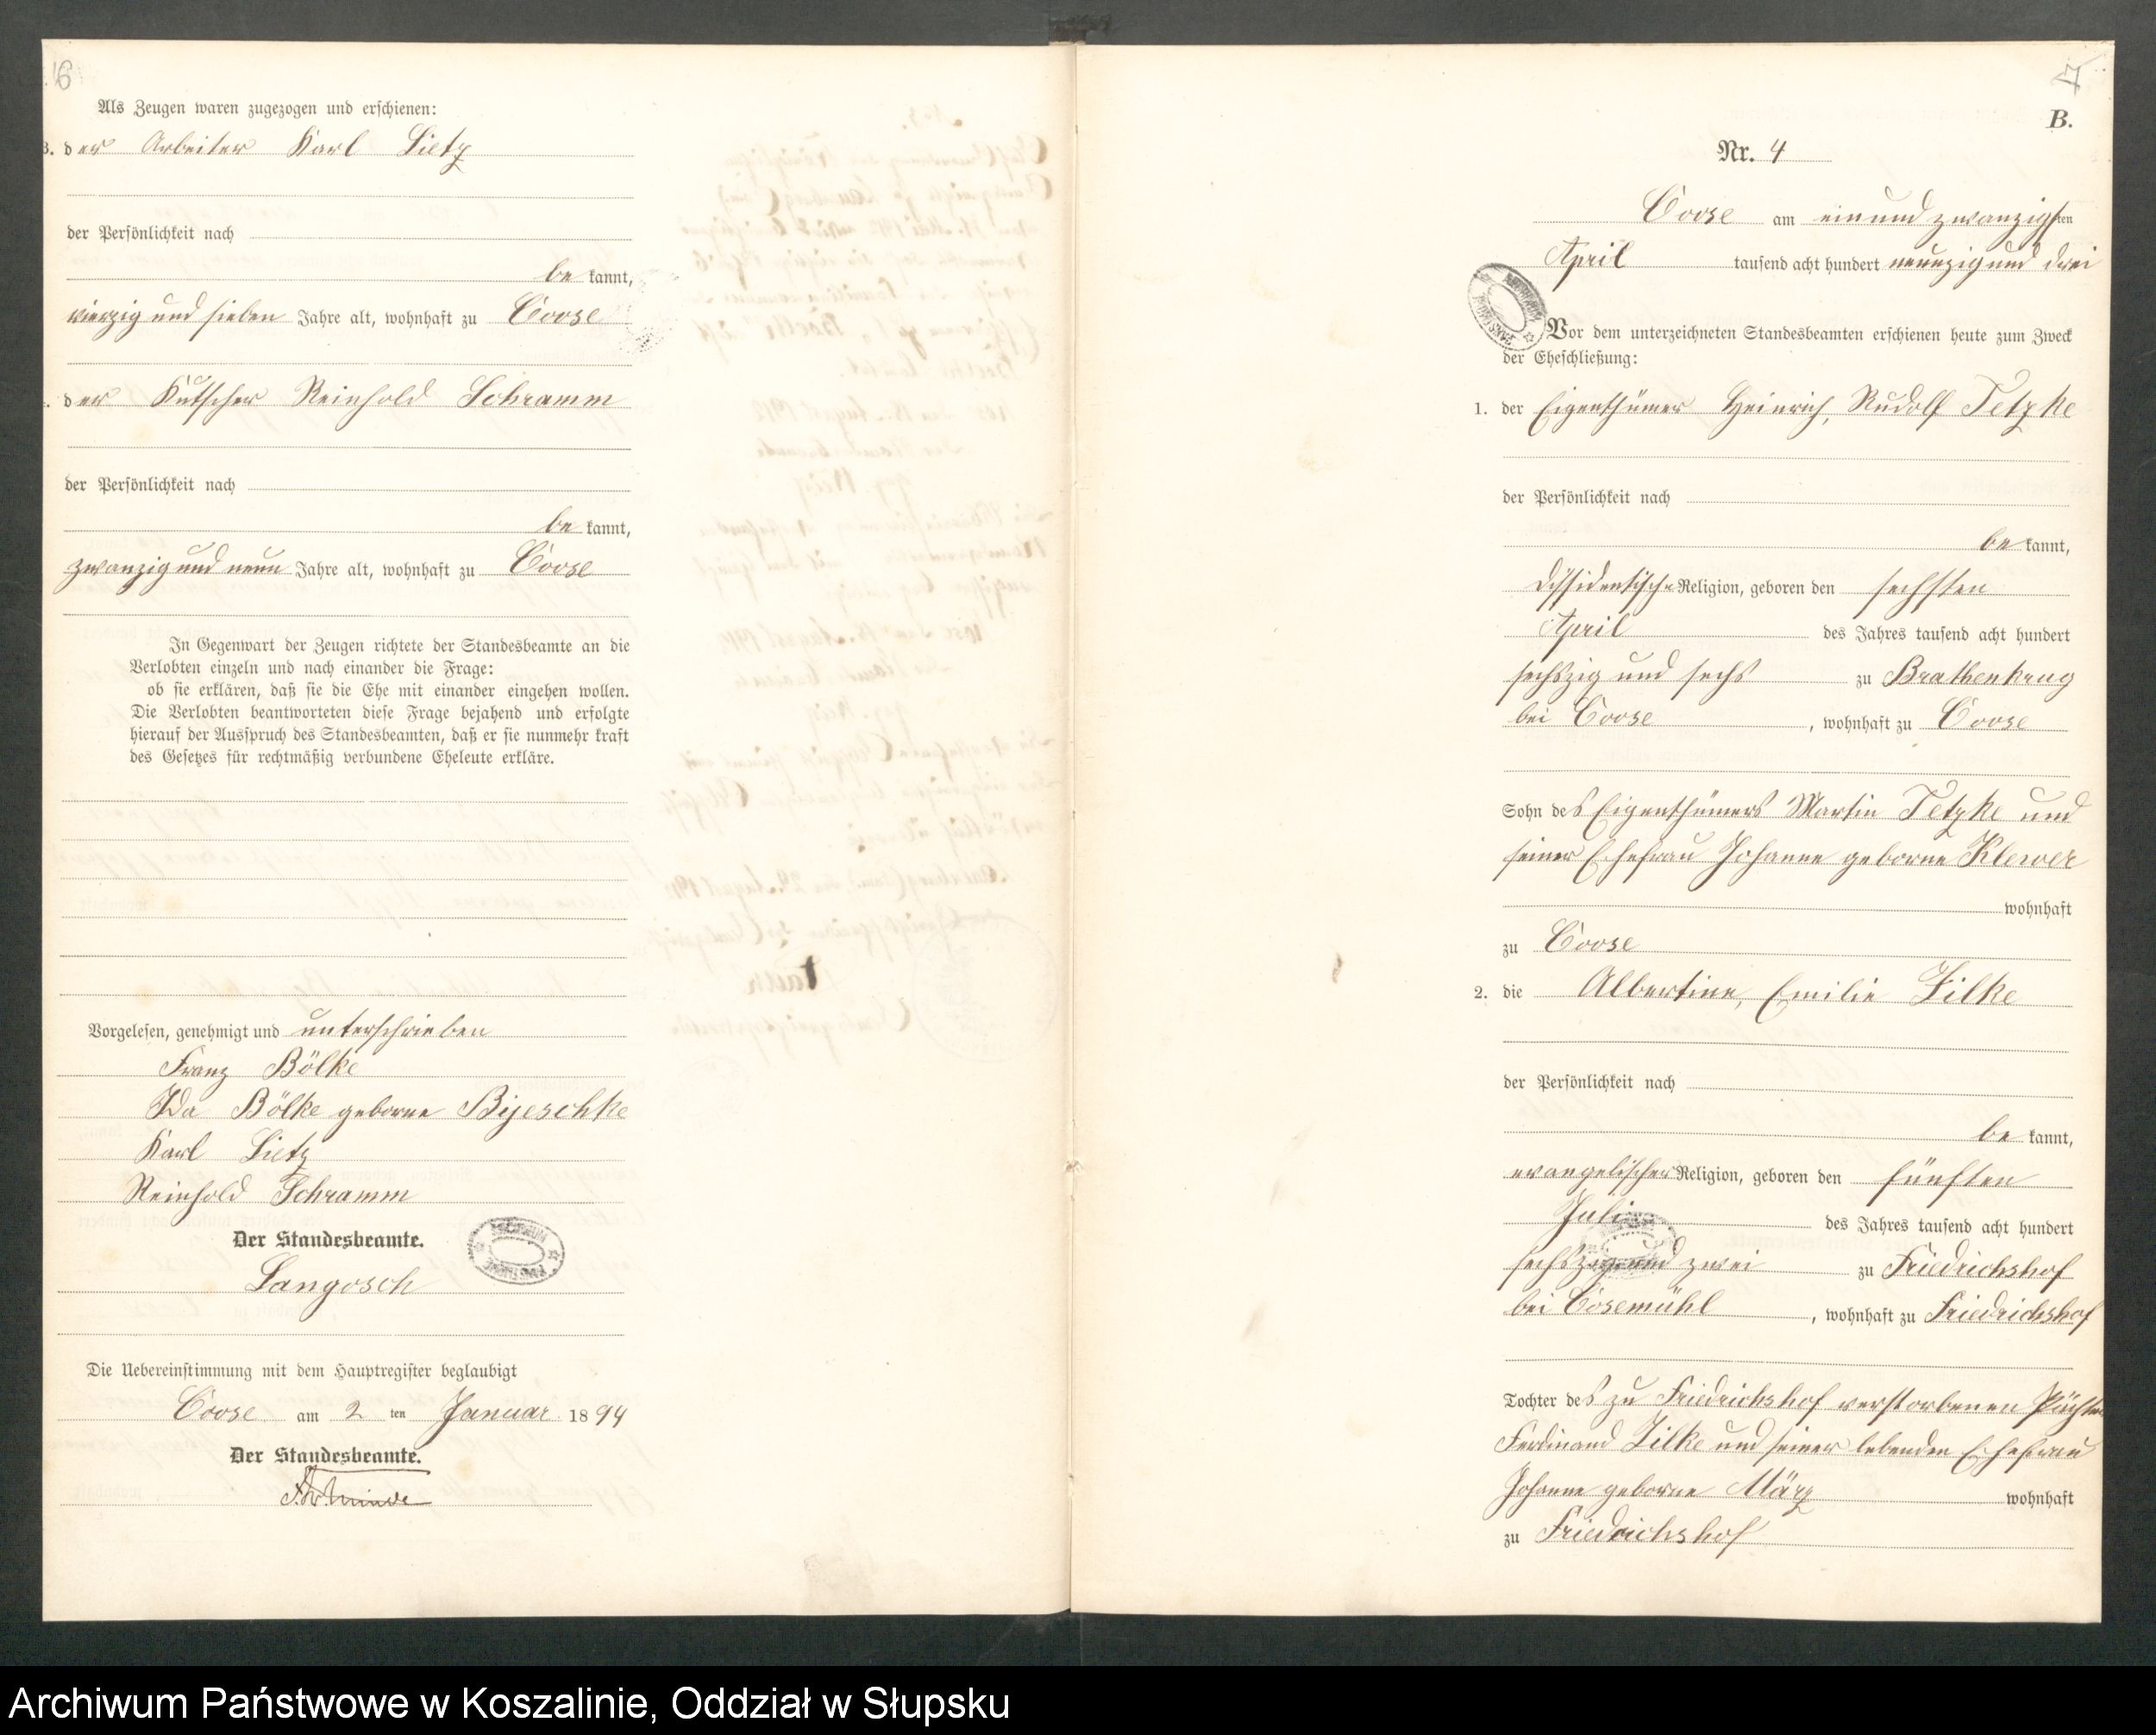 6
Als Zeugen waren zugezogen und erschienen:
3. der Arbeiter Karl Lietz
der Persönlichkeit nach
be kannt,
vierzig und sieben Jahre alt, wohnhaft zu Coose
der Kutscher Reinhold Schramm
der Persönlichkeit nach
be kannt,
zwanzig und neun Jahre alt, wohnhaft zu Coose
In Gegenwart der Zeugen richtete der Standesbeamte an die
Verlobten einzeln und nach einander die Frage:
ob sie erklären, daß sie die Ehe mit einander eingehen wollen.
Die Verlobten beantworteten diese Frage bejahend und erfolgte
hierauf der Ausspruch des Standesbeamten, daß er sie nunmehr kraft
des Gesetzes für rechtmäßig verbundene Eheleute erkläre.
Vorgelesen, genehmigt und unterschrieben
Franz Bölke
Ida Bölke geborne Bijeschke
Karl Lietz
Reinhold Schramm
Der Standesbeamte.
Langosch
Die Uebereinstimmung mit dem Hauptregister beglaubigt
Coose am 2 ten Januar 1894
Der Standesbeamte.
7
B.
Nr. 4
Coose am ein und zwanzigsten
April tausend acht hundert neunzig und drei
Vor dem unterzeichneten Standesbeamten erschienen heute zum Zweck
der Eheschließung:
1. der Eigenthümer Heinrich, Rudolf Tetzke
der Persönlichkeit nach
be kannt,
dissidentische Religion, geboren den sechsten
April des Jahres tausend acht hundert
sechszig und sechs zu Brathenkrug
bei Coose, wohnhaft zu Coose
Sohn des Eigenthümers Martin Tetzke und
seiner Ehefrau Johanne geborne Klewer
wohnhaft
zu Coose
2. die Albertine, Emilie Zilke
der Persönlichkeit nach
be kannt,
evangelischer Religion, geboren den fünften
Juli des Jahres tausend acht hundert
sechszig und zwei zu Friedrichshof
bei Cosemühl, wohnhaft zu Friedrichshof
Tochter des zu Friedrichshof verstorbenen Pächters
Ferdinand Zilke und seiner lebenden Ehefrau
Johanne geborne März wohnhaft
zu Friedrichshof
Archiwum Państwowe w Koszalinie, Oddział w Słupsku